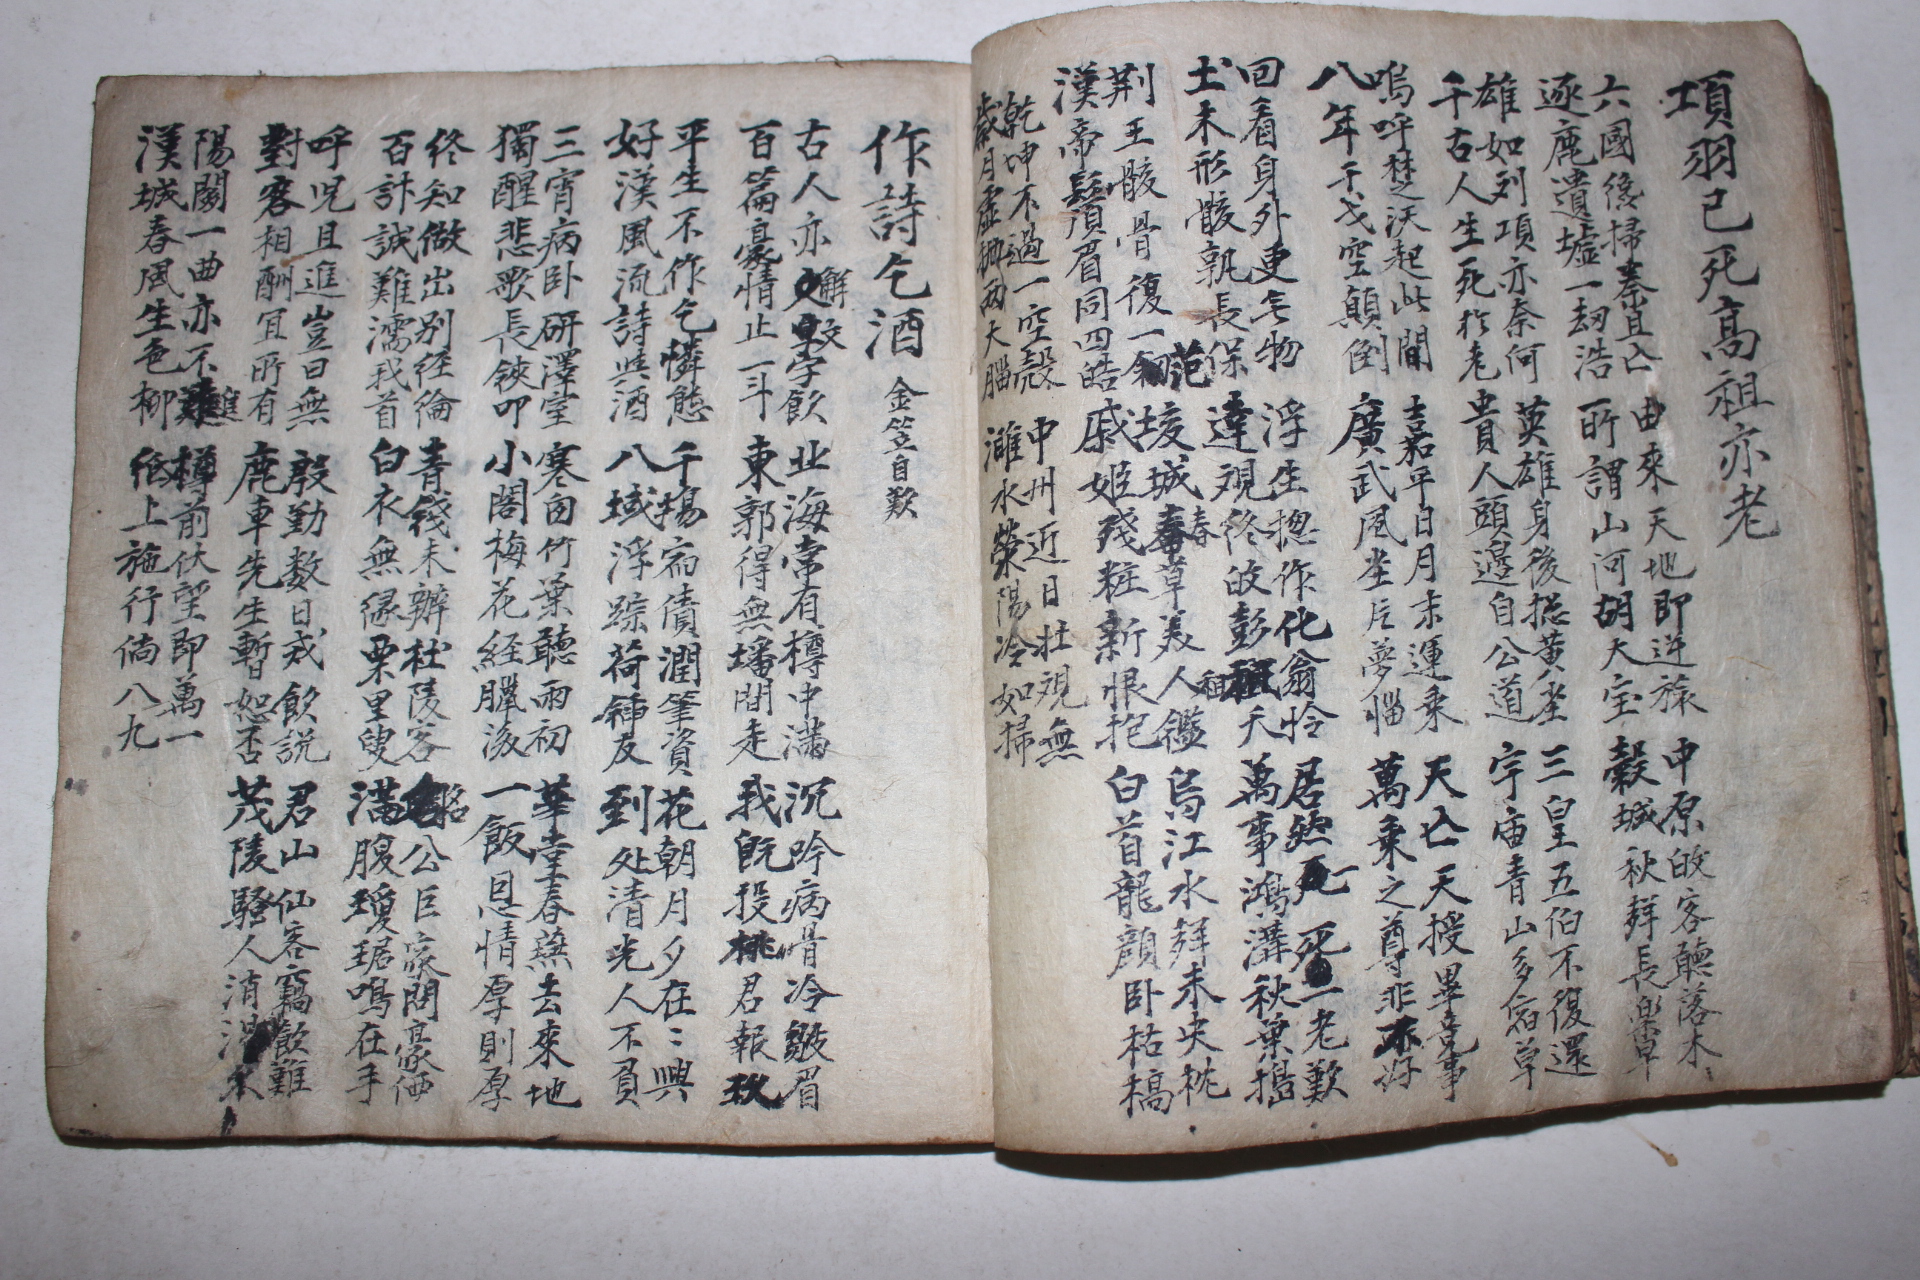 項羽已死高祖亦老
六國後掃秦且亡
逐鹿遺墟一劫浩
由來天地即逆旅
所謂山河胡大宝
中原皎客聽落木
穀城秋鮮長樂草
雄如列項亦奈何
千古人生死於老
英雄身後摠黃尘
貴人頭邊自公道
三皇五伯不復還
宇宙青山多宿草
嗚呼楚沃起此間
八年干戈空顛倒
嘉平日月末運乘
廣武風尘片夢惱
天亡天授畢竟事
萬乘之尊非不好
回看身外更无物
土木形骸孰長保
浮生摠作化翁怜
達観終皎彭祖夭
居然一死一老歎
萬事鴻溝秋葉搗
荊王骸骨復一范
漢帝鬚眉同四皓
垓城春草美人鑑
戚姬殘粧新恨抱
烏江水鮮未央枕
白首龍顏卧枯槁
乾坤不過一空殼
歲月虛抛兩大腦
中州近日壯観無
濉水滎陽冷如掃
作詩乞酒 金笠自歎
古人亦解蛟字飲
百篇豪情止一斗
北海常有樽中滿
東郭得無墦間走
沉吟病骨冷皺眉
我旣投桃君報玖
平生不作乞憐態
好漢風流詩與酒
千場宿債潤筆資
八域浮踪荷鍤友
花朝月夕在〻興
到処清光人不負
三宵病卧研澤室
獨醒悲歌長鋏叩
寒囱竹葉聽雨初
小閣梅花経臘後
華堂春蕪去來地
一飯恩情厚則厚
終知做出別経綸
百計誠難濡我首
青錢未辦杜陵客
白衣無緣栗里叟
公巨家閙豪価
滿腹瓊琚鳴在手
呼児且進豈曰無
對客相酬冝所有
殷勤数日戒飲説
鹿車先生暫恕否
君山仙客竊飲難
茂陵騷人消渴
陽關一曲亦不進
漢城春風生色柳
樽前伏望即萬一
低上施行倘八九